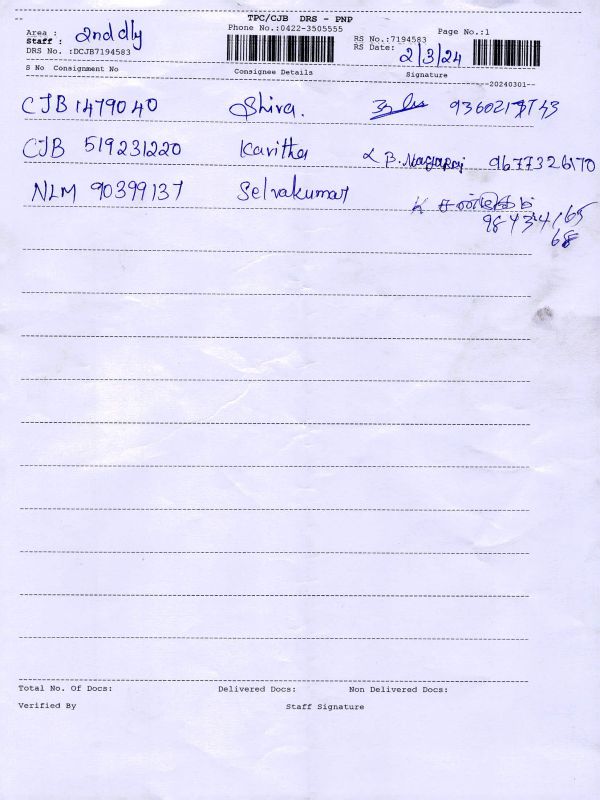 TPC/CJB DRS - PNP
Phone No.:0422-3505555
Page No.:1
Area : 2nd dly
Staff :
DRS No. :DCJB7194583
RS No.:7194583
RS Date: 2/3/24
S No Consignment No Consignee Details Signature
---20240301--
CJB 1479040 Shiva.
CJB 519231220 Kavitha B. Nagaraj 9677326170
NLM 90399137 Selvakumar
98434165
68
Total No. Of Docs: Delivered Docs: Non Delivered Docs:
Verified By Staff Signature